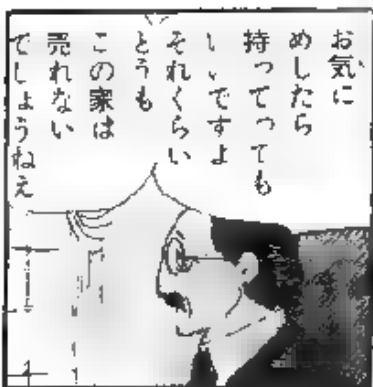 お気に
めしたら
持ってっても
いいですよ
それくらい
とうも
この家は
売れない
でしょうねえ